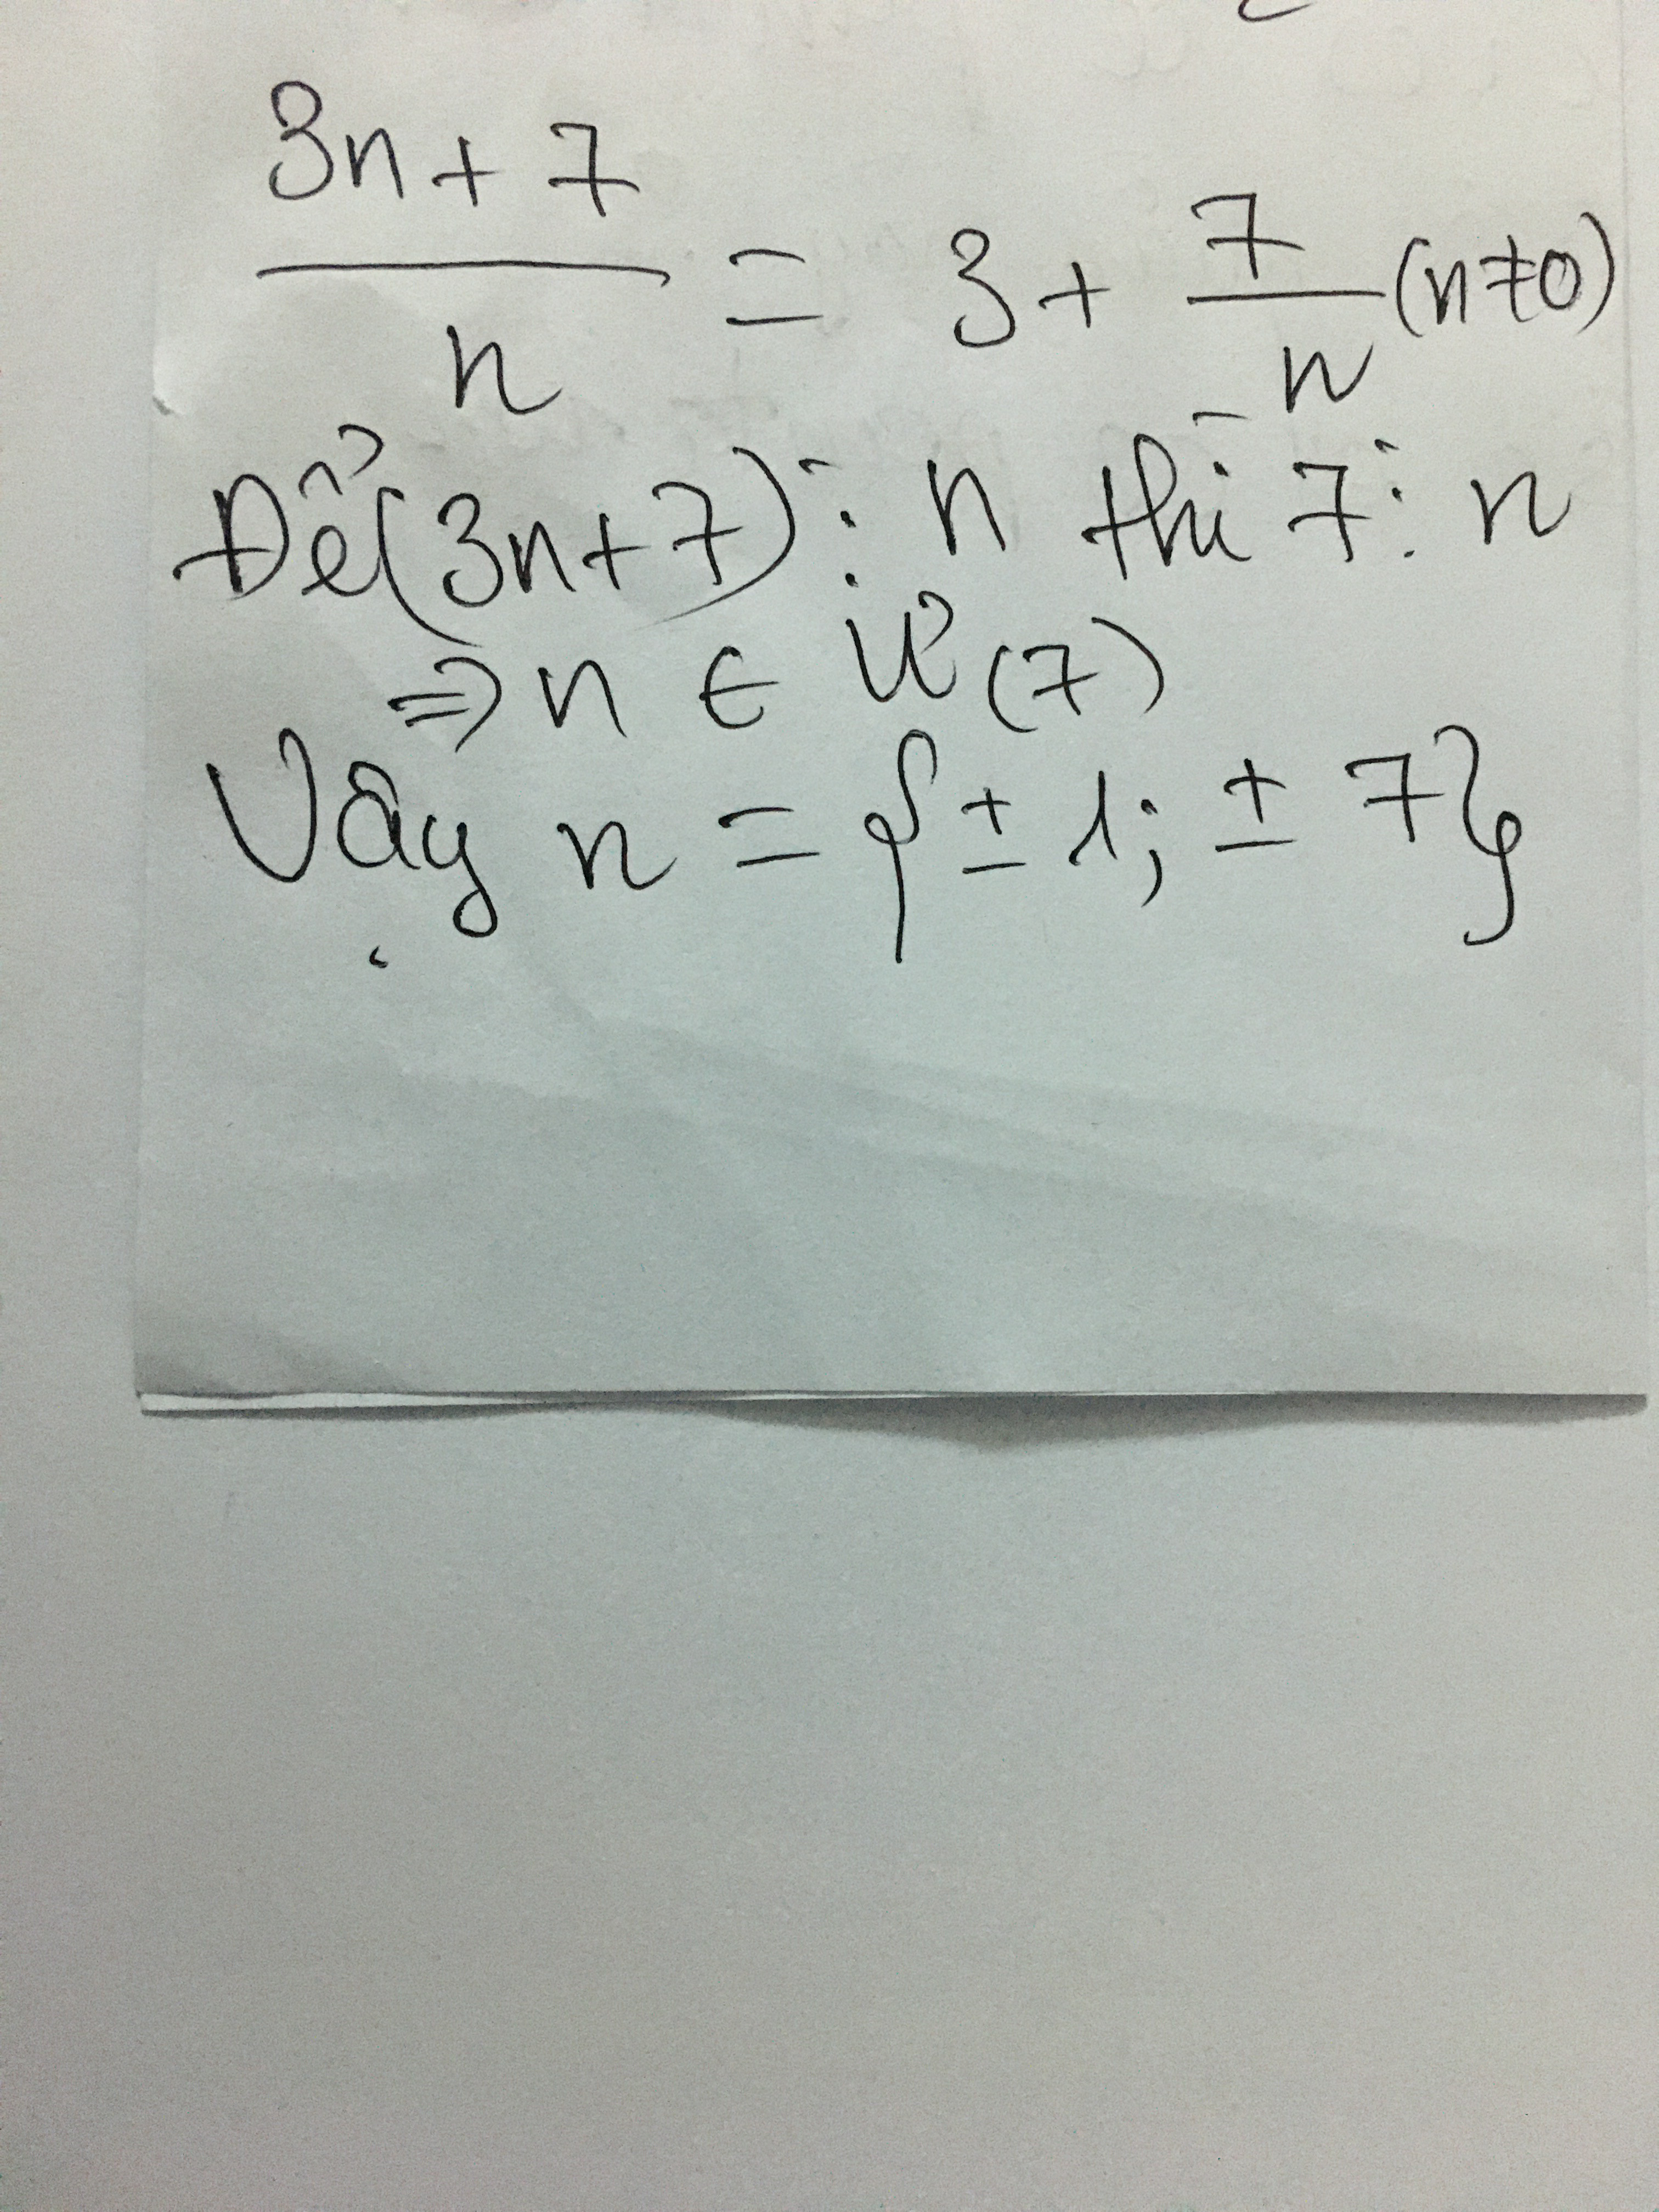 3n + 7 / n = 3 + 7 / n (n ≠ 0)
Để (3n + 7) ⋮ n thì 7 ⋮ n
⇒ n ∈ Ư (7)
Vậy n = { ± 1; ± 7 }